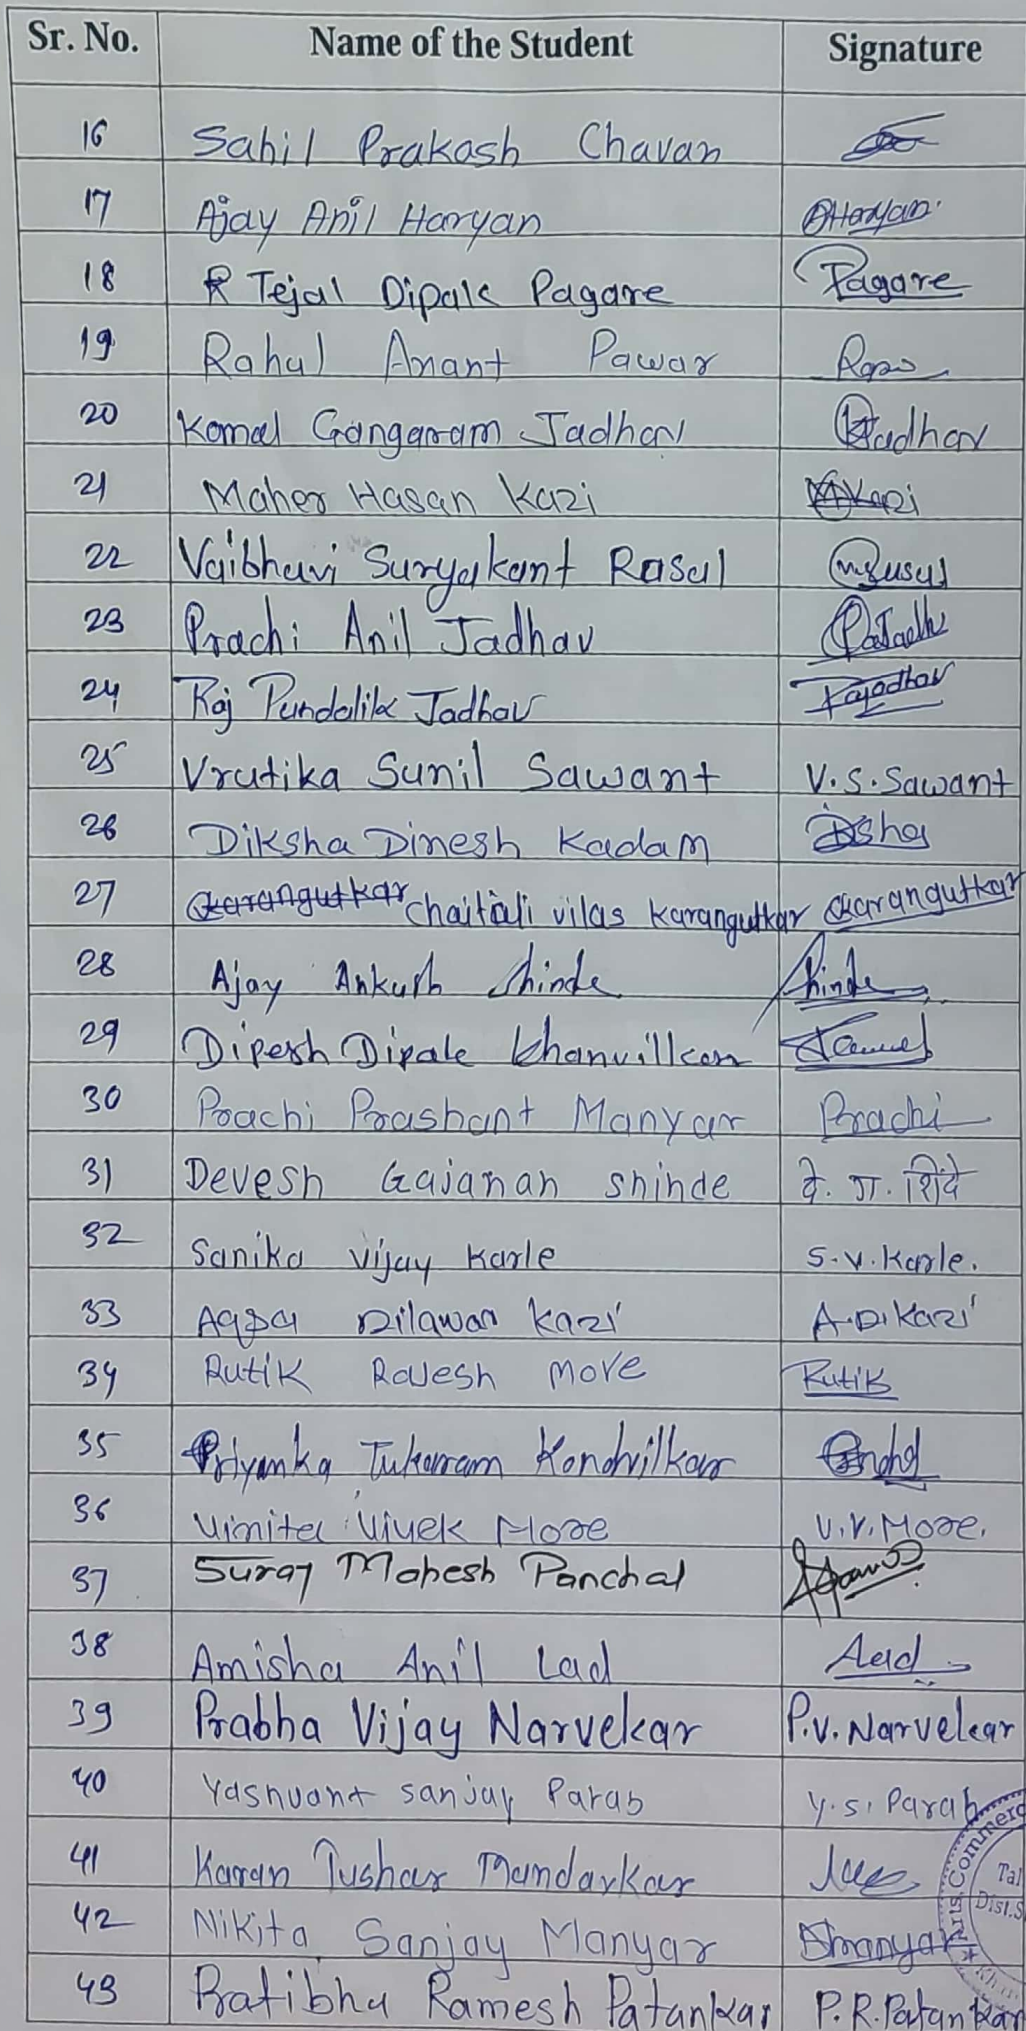 Sr. No. Name of the Student Signature
16 Sahil Prakash Chavan
17 Ajay Anil Haryan Haryan
18 Tejal Dipak Pagare Pagare
19 Rahul Anant Pawar
20 Komal Gangaram Jadhav Jadhav
21 Maher Hasan Kazi Kazi
22 Vaibhavi Suryakant Rasal
23 Prachi Anil Jadhav
24 Raj Pundalik Jadhav
25 Vrutika Sunil Sawant V.S.Sawant
26 Diksha Dinesh Kadam
27 Karangutkar Chaitali vilas Karangutkar Karangutkar
28 Ajay Ankush Shinde Shinde
29 Dipesh Dipak Khanvilkar
30 Prachi Prashant Manyar Prachi
31 Devesh Gajanan Shinde दे. ग. शिंदे
32 Sanika Vijay Karle S.V.Karle.
33 Aqsa Dilawar Kazi A.D.Kazi
34 Rutik Rajesh More Rutik
35 Priyanka Tukaram Kondvilkar
36 Vinita Vivek More V.V.More.
37 Suraj Mahesh Panchal
38 Amisha Anil Lad
39 Prabha Vijay Narvekar P.V.Narvekar
40 Yashvant Sanjay Parab Y.S. Parab
41 Karan Tushar Mandavkar
42 Nikita Sanjay Manyar Manyar
43 Pratibha Ramesh Patankar P.R.Patankar
Arts, Commerc
Tal
Dist.S